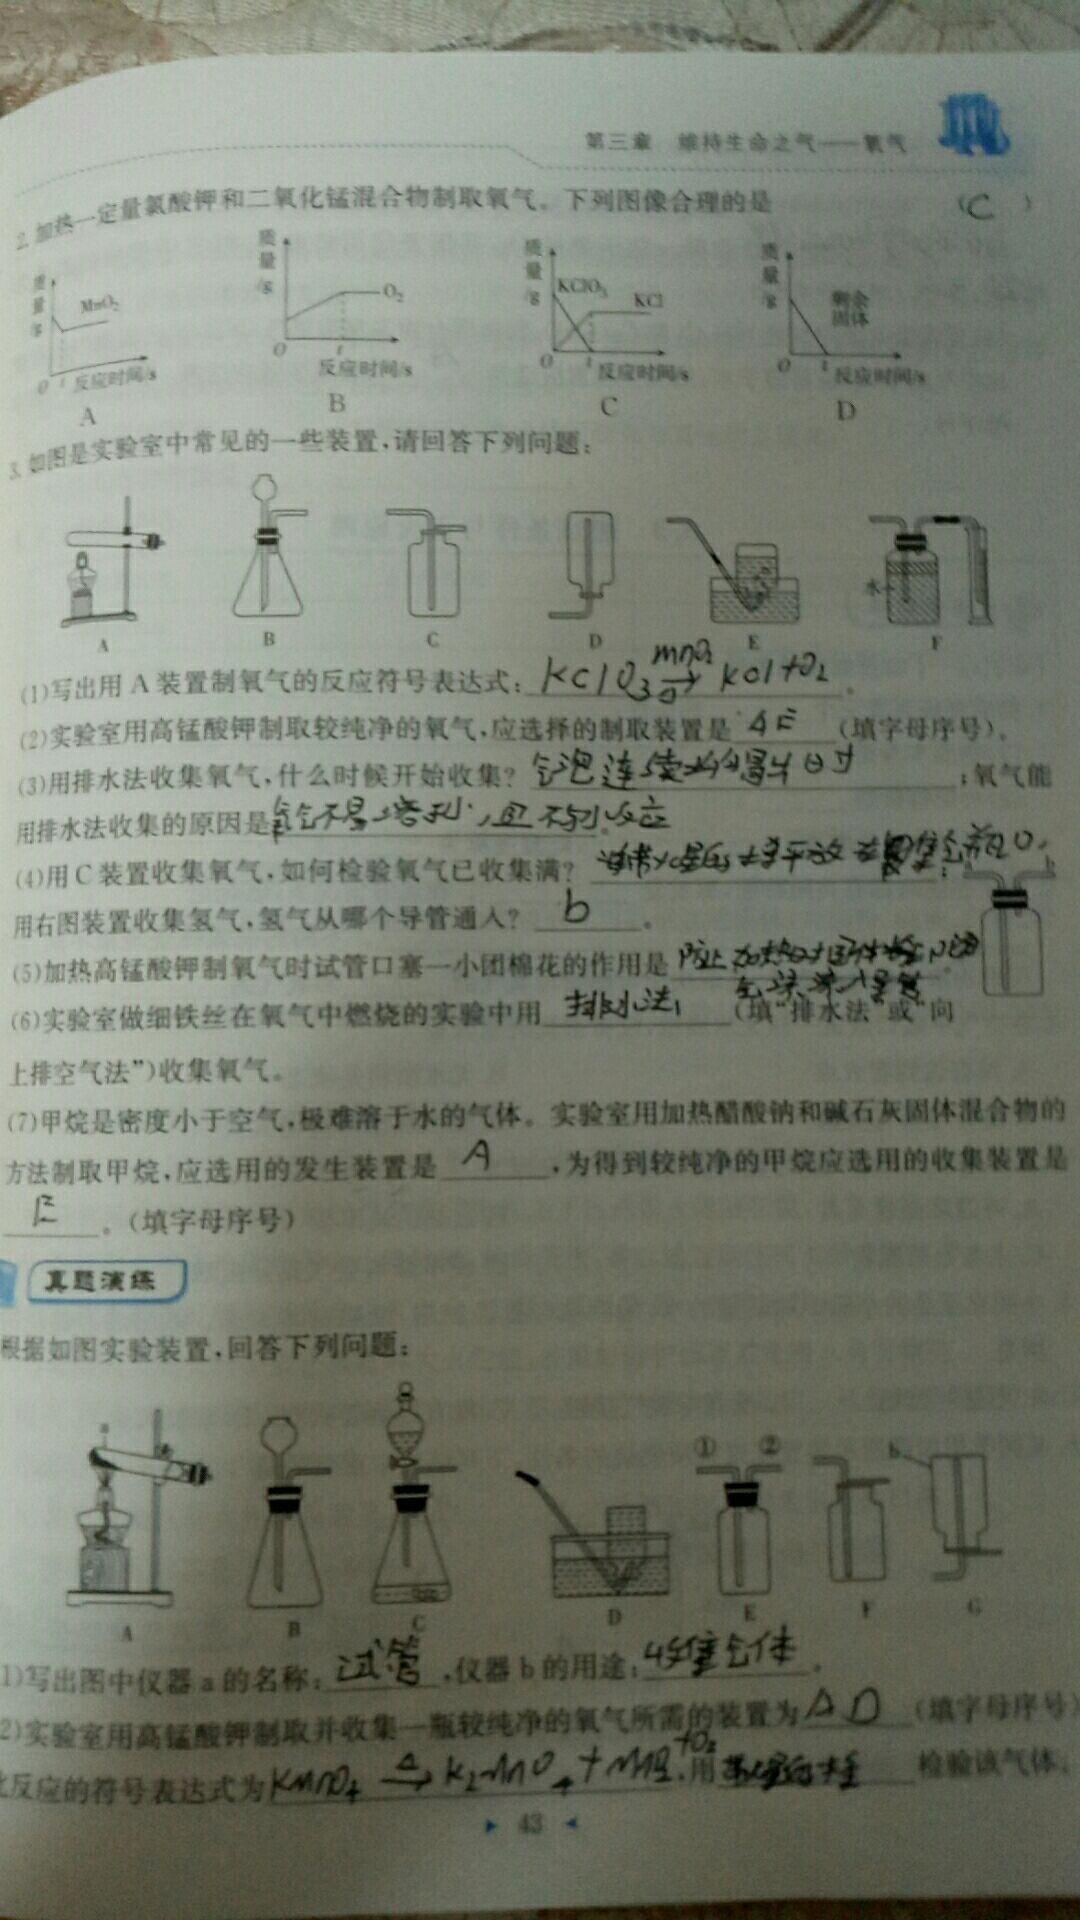 第三章 维持生命之气——氧气
2. 加热一定量氯酸钾和二氧化锰混合物制取氧气。下列图像合理的是 (C)
质量/g MnO₂ O t 反应时间/s A
质量/g O₂ O t 反应时间/s B
质量/g KClO₃ KCl O t 反应时间/s C
质量/g 剩余固体 O t 反应时间/s D
3. 如图是实验室中常见的一些装置,请回答下列问题:
水
A B C D E F
(1)写出用 A 装置制氧气的反应符号表达式: KClO₃ MnO₂ △ → KCl+O₂ 。
(2)实验室用高锰酸钾制取较纯净的氧气,应选择的制取装置是 AE (填字母序号)。
(3)用排水法收集氧气,什么时候开始收集? 气泡连续均匀冒出时 ;氧气能
用排水法收集的原因是 氧气不易溶于水,且不与水反应
(4)用 C 装置收集氧气,如何检验氧气已收集满? 带火星的木条平放在集气瓶口 ;
用右图装置收集氢气,氢气从哪个导管通入? b 。
b
(5)加热高锰酸钾制氧气时试管口塞一小团棉花的作用是 防止加热时 。
(6)实验室做细铁丝在氧气中燃烧的实验中用 排水法 (填“排水法”或“向
上排空气法”)收集氧气。
(7)甲烷是密度小于空气,极难溶于水的气体。实验室用加热醋酸钠和碱石灰固体混合物的
方法制取甲烷,应选用的发生装置是 A ,为得到较纯净的甲烷应选用的收集装置是
E 。(填字母序号)
真题演练
根据如图实验装置,回答下列问题:
a ① ② b
A B C D E F G
1)写出图中仪器 a 的名称: 试管 ,仪器 b 的用途: 收集气体 。
2)实验室用高锰酸钾制取并收集一瓶较纯净的氧气所需的装置为 AD (填字母序号)
反应的符号表达式为 KMnO₄ △ → K₂MnO₄+MnO₂+O₂ .用 带火星的木条 检验该气体。
43